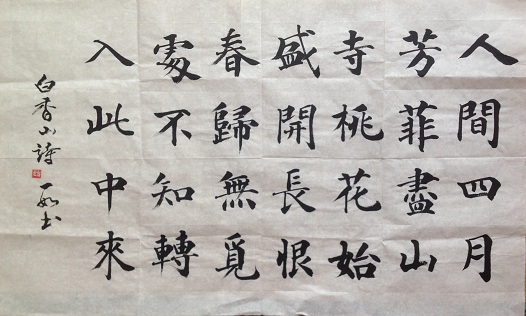 人間四月
芳菲盡山
寺桃花始
盛開長恨
春歸無覓
處不知轉
入此中來
白香山詩 一